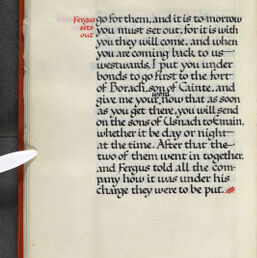 Fergus
sets
out
go for them, and it is to-morrow
you must set out, for it is with
you they will come, and when
you are coming back to us
westwards, I put you under
bonds to go first to the fort
of Borach, son of Cainte, and
word
give me your, now that as soon
as you get there, you will send
on the sons of Usnach to Emain,
whether it be day or night
at the time. After that the
two of them went in together,
and Fergus told all the com-
pany how it was under his
charge they were to be put.